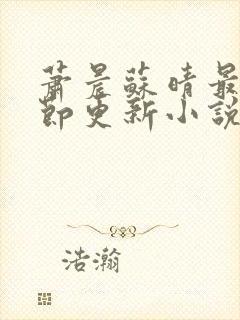 蕭晨蘇晴最
節更新小說
浩瀚